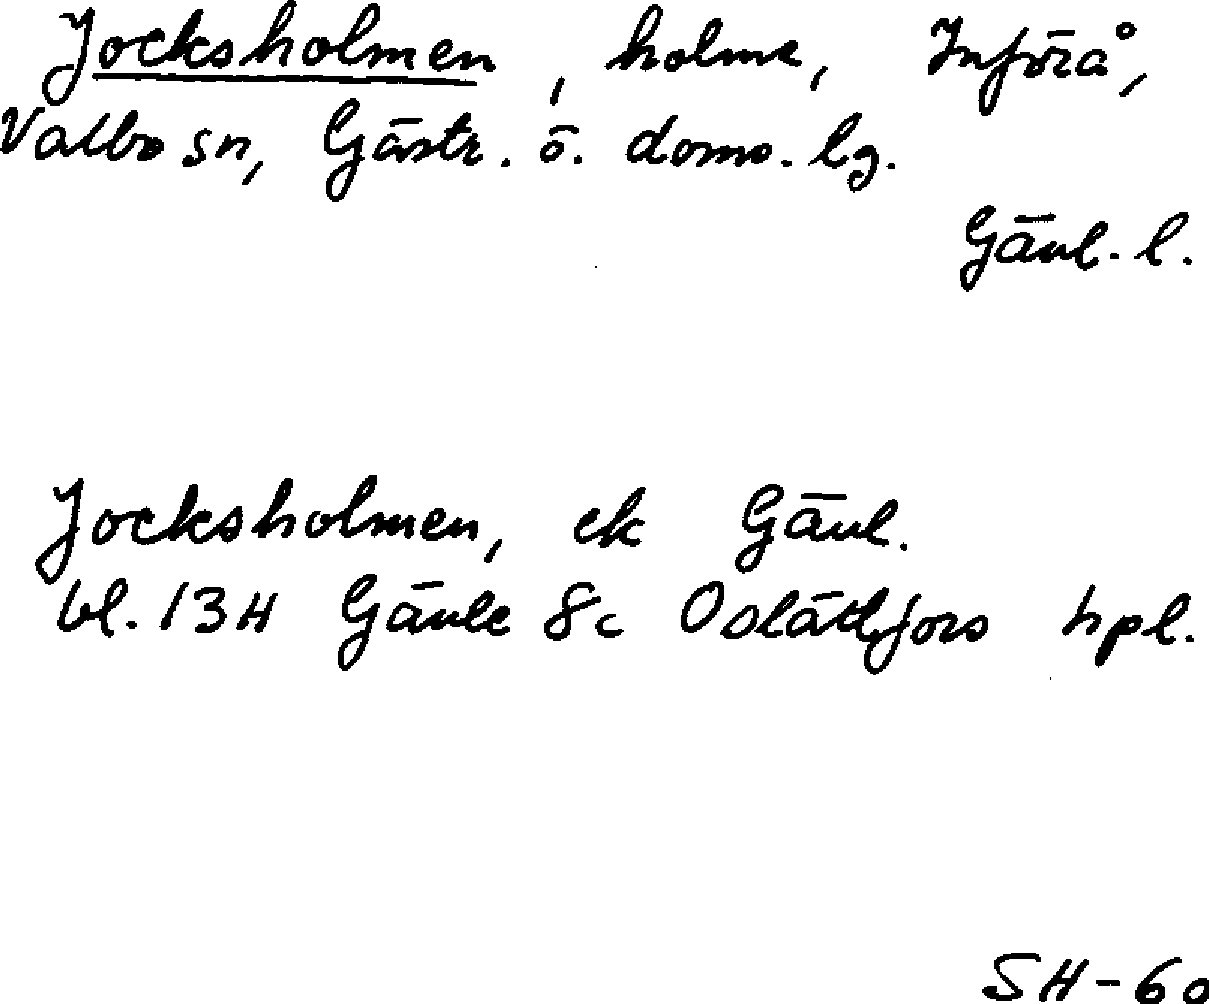 Jocksholmen, holme, Införå,
Valbo sn, Gästr. ö. doms. lg.
Gävl. l.
Jocksholmen, ek Gävl.
bl. 13H Gävle 8c Oslättfors hpl.
SH-60